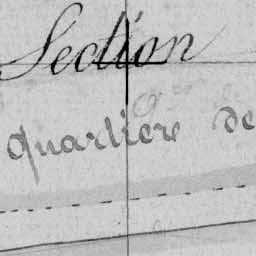 Section
quartier de